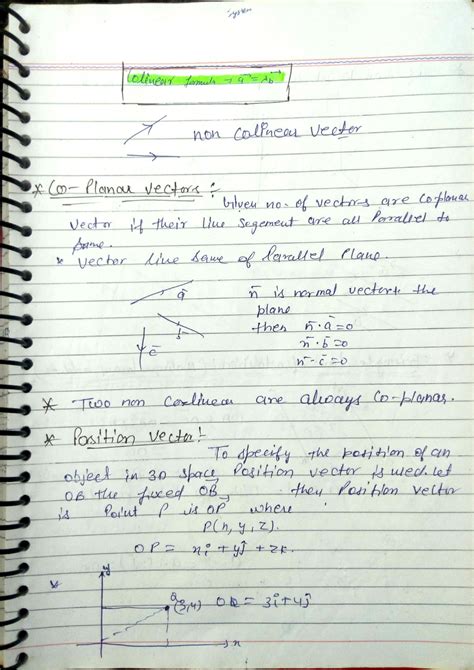 System
Colinear formula → a⃗ = λb⃗
non Colinear Vector
* Co-Planar Vectors :- Given no. of vectors are Co planar
Vector if their line Segement are all Parralel to
Same.
* Vector line Same of Parallel Plane.
a̅ n̅ is normal vector the
plane
b̅ then n̅·a̅=0
c̅ n̅·b̅=0
n̅-c̅=0
* Two non Corlinear are always Co-planar.
* Position Vector!-
To specify the position of an
object in 3D Space, Position vector is used. let
OB the fixed OB, then Position vector
is Point P is OP where
P(n, y, z).
OP = ni + yj + zk.
* y
(3,4) OQ = 3i+4j
n